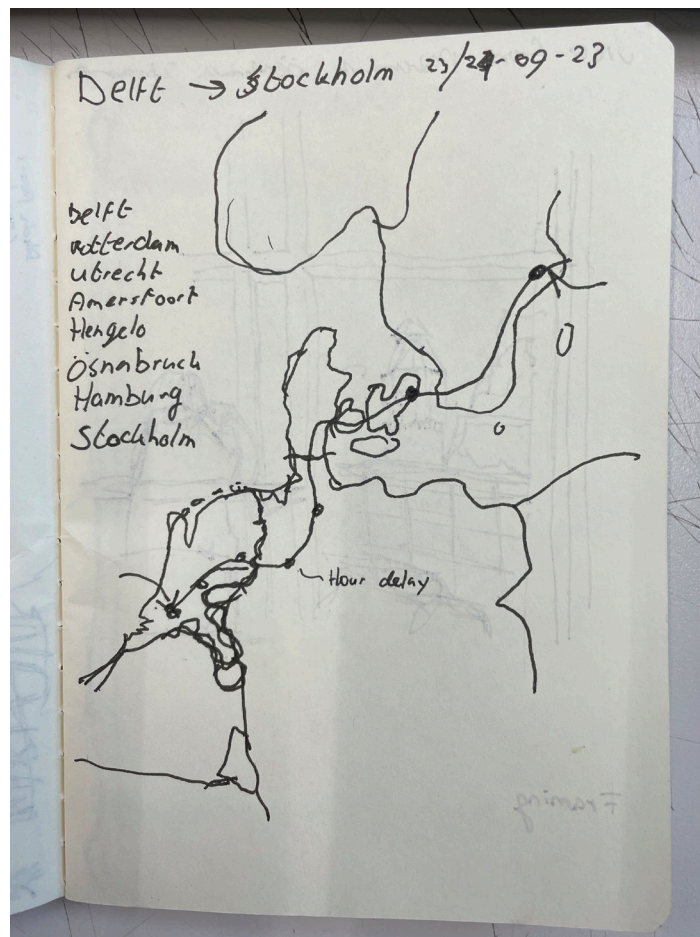 Delft → Stockholm 23/24-09-23
Delft
Rotterdam
Utrecht
Amersfoort
Hengelo
Osnabruck
Hamburg
Stockholm
Hour delay
Framing